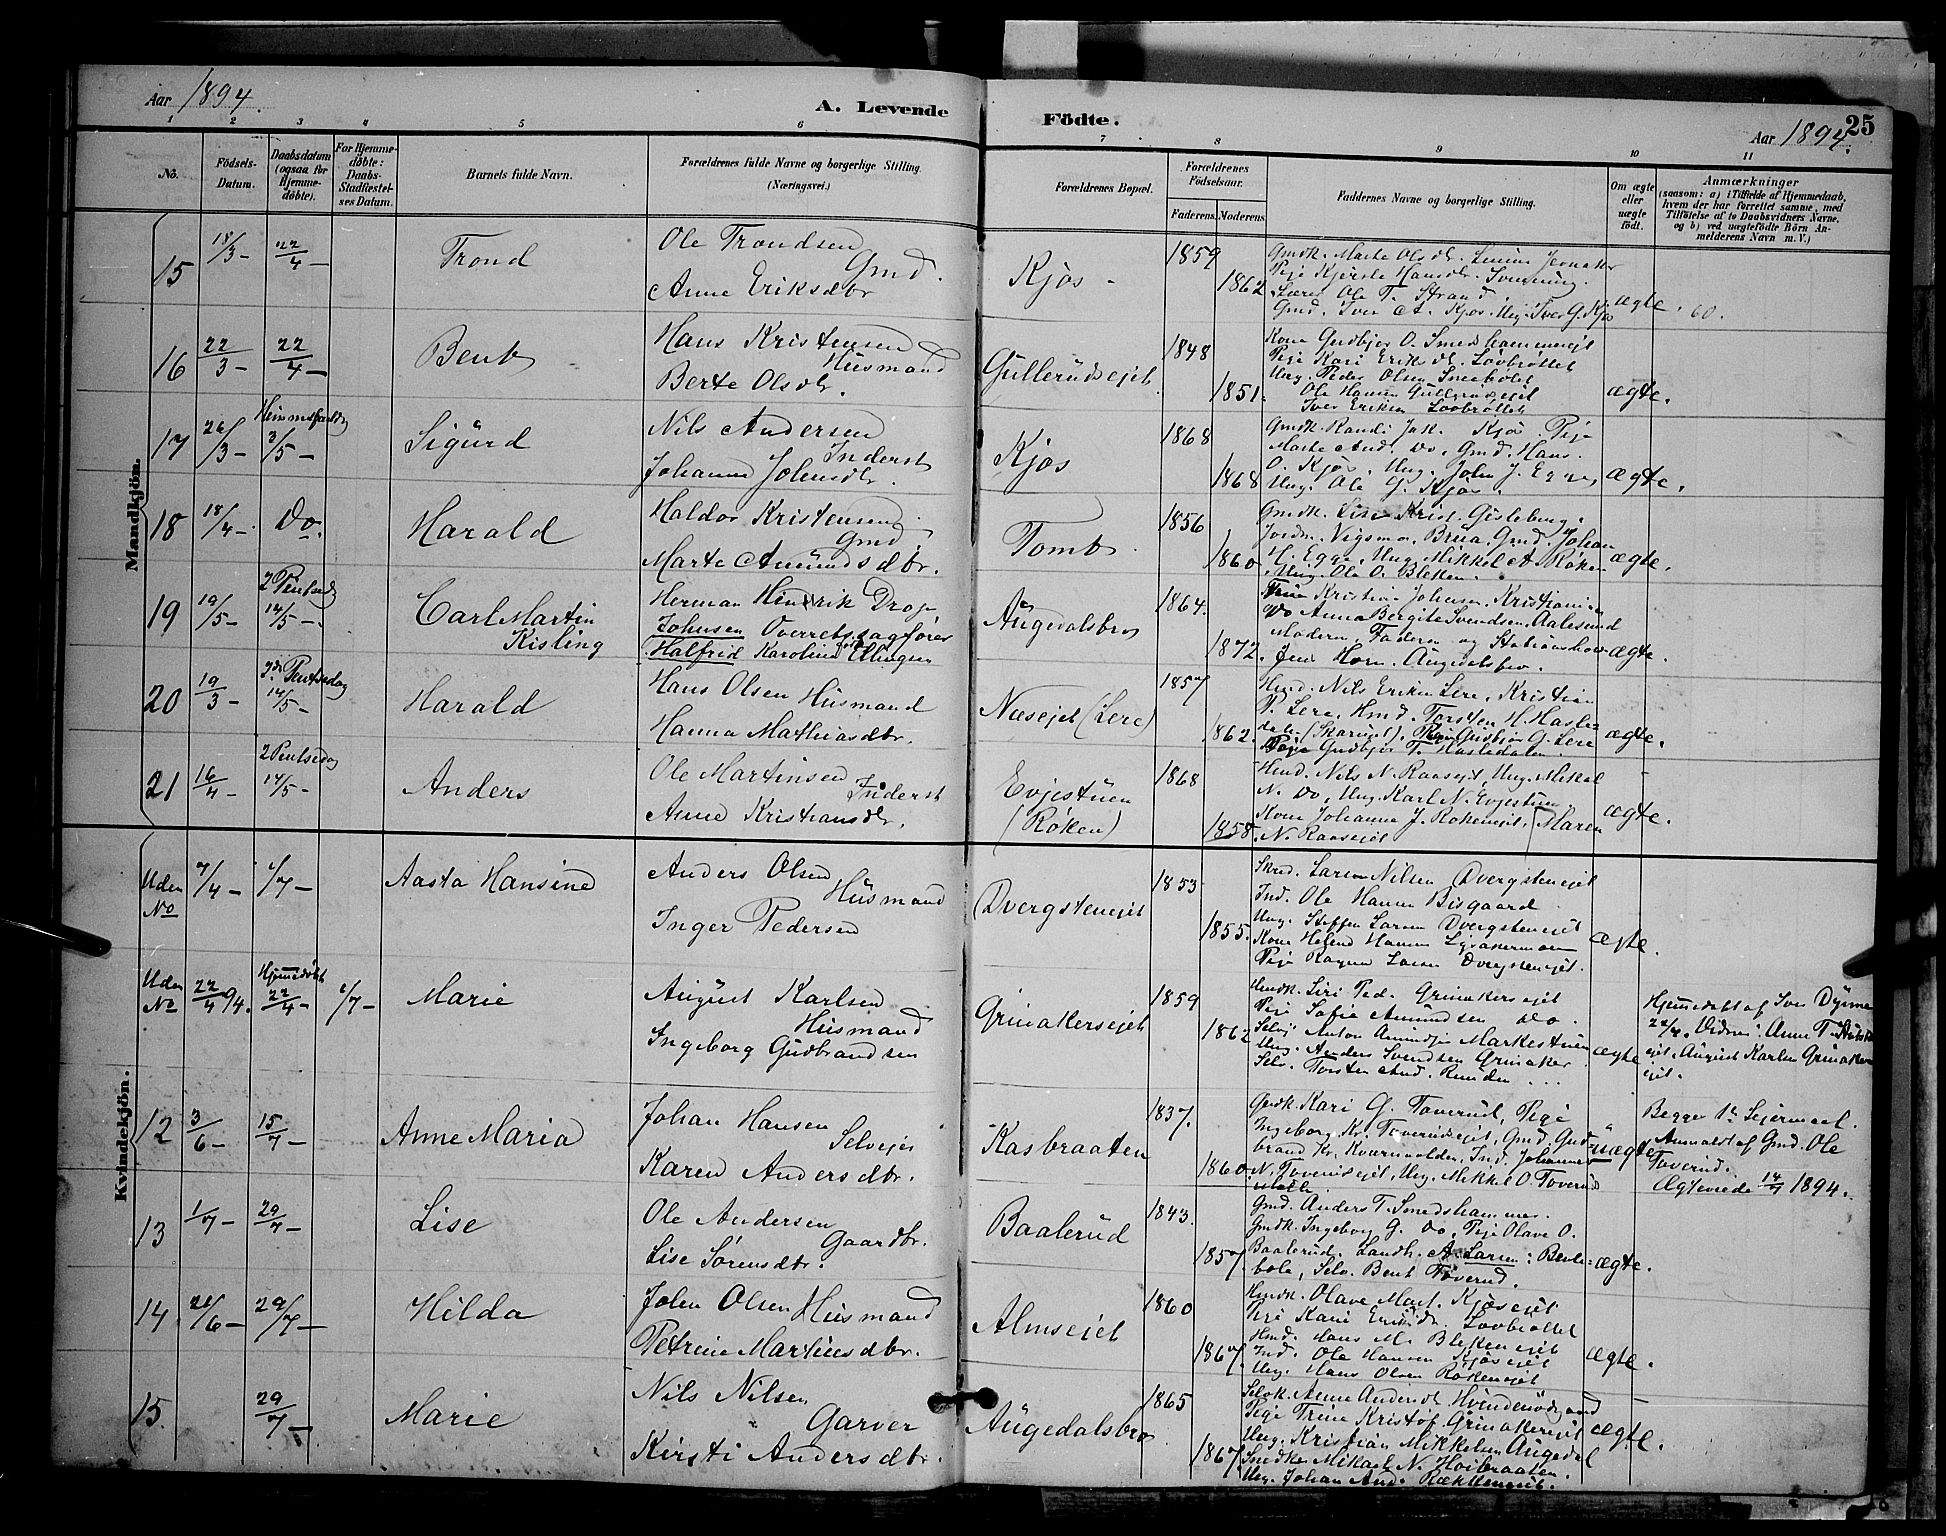 Aar 1894.
A. Levende
Födte.
Aar 1894.
25
1 2 3 4 5 6 7 8 9 10 11
No.
Födsels-Datum.
Daabsdatum (ogsaa for Hjemmedøbte).
For Hjemmedøbte: Daabs-Stadfæstelses Datum.
Barnets fulde Navn.
Forældrenes fulde Navne og borgerlige Stilling.
(Næringsvei.)
Forældrenes Bopæl.
Forældrenes Födselsaar.
Faderens. Moderens.
Faddernes Navne og borgerlige Stilling.
Om ægte eller uægte født.
Anmærkninger
(saasom: a) i Tilfælde af Hjemmedaab, hvem der har forrettet samme, med Tilföielse af to Daabsvidners Navne, og b) ved uægtefödte Börn Anmelderens Navn m. V.)
Mandkjön.
15 18/3 - 22/4 - Trond
Ole Trondsen
Gmd.
Anne Eriksdtr
Kjos -
1859
1862
Lærer Ole T. Strand
ægte.
60.
16 22/3 - 22/4 - Bent
Hans Kristensen
Husmand
Berte Olsdtr.
Gullerudsejet
1848
1851.
Kone Gudbjør O. Smedshammerejet
Pige Kari Eriksdtr. Lovbrøttet
Ung. Peder Olsen
Ole Hansen Gullerudsejet
Iver Eriksen Lovbrøttet
ægte.
17 26/3 - 3/5 - Sigurd
Nils Andersen
Inderst
Johanne Johnsdtr.
Kjos
1868
1868
Gmdk. Randi Jak. Kjos Pige
Marte And. Do. Gmd. Hans
O. Kjos, Ung. John J. Egge,
Ung. Ole G. Kjos.
ægte.
18 18/4 - Do. Harald
Haldor Kristensen
Gmd
Marte Amundsdtr.
Tomb.
1856
1860
Gmdk. Lise Krist. Gisleberg.
H. Egge, Ung. Mikkel A. Røken
Ung. Ole O. Bleken.
ægte.
19 19/5 - 2 Pintsedag 14/5 - Carl Martin
Kisling
Herman Hendrik
Johnsen Overretssagfører
Halfrid Karoline Ellingsen
Augedalsbro
1864.
1872.
Frue Kristine Johnsen, Kristiania
Do Anna Bergite Svendsen, Aalesund
Moderen, Faderen og
Jens Horn. Augedalsbro.
ægte.
20 19/3 - 2den Pintsedag 14/5 - Harald
Hans Olsen Husmand
Hanna Mathiasdtr.
Næsejet (Lere)
1857
1862.
Hmd. Nils Eriksen Lere, Kristian
P. Lere, Hmd. Torsten H. Hasle-
Pige Gudbjør T. Hasledalen
ægte.
21 16/4 - 2 Pintsedag 14/5 - Anders
Ole Martinsen
Inderst
Anne Kristiansdtr.
Evjestuen
(Røken)
1868
1858.
Hmd. Nils N. Raasejet, Ung. Mikal
N. Do, Ung. Karl N. Evjestuen
Kone Johanne J. Røkenejet, Maren
N. Raasejet
ægte.
Kvindekjön.
Uden No 7/4 - 1/7 - Aasta Hansine
Anders Olsen
Husmand
Inger Pedersen
Dvergstenejet
1853
1855.
Skrd. Larsen Nilsen Dvergstenejet
Ind. Ole Hansen Bisgaard
Ung. Steffen Larsen Dvergstenejet
Kone Helene Hansen
Pige Ragna Larsen Dvergstenejet.
ægte.
Uden No 22/4 94. Hjemmedøbt 22/4 - 1/7 - Marie
August Karlsen
Husmand
Ingeborg Gudbrandsen
Grinakersejet
1859
1862
Hmdk. Siri Ped. Grinakersejet
Pige Sofie Amundsen Do.
Selvj. Anton Amundsen Markestuen
Ung. Anders Svendsen Grinaker
Selv. Torsten And. Runden ...
ægte
Hjemmedøbt af Iver Dynne
22/4. Vidner: Anne T.
ejet, August Karlsen Grinaker
ejet.
12 3/6 - 15/7 - Anne Maria
Johan Hansen
Selvejer
Karen Andersdtr.
Kasbraaten
1837.
1860.
Gmdk. Kari G. Toverud, Pige
Ingeborg Kr. Toverudsejet, Gmd. Gud-
brand Kr. Kværnvolden, Ind. Johannes
N. Toverudsejet, Ung. Mikkel O. Toverud
uægte
Begge 1ste Lejermaal.
Anmeldt af Gmd. Ole
Toverud.
Ægteviede 14/7 1894.
13 1/7 - 29/7 - Lise
Ole Andersen
Gaardbr.
Lise Sørensdtr.
Baalerud
1843.
1857.
Gmd. Anders T. Smedshammer.
Gmdk. Ingeborg G. Do, Pige Olave O.
Baalerud. Landh. A. Larsen: Bente-
bole, Selv. Bent Toverud.
ægte.
14 21/6 - 29/7 - Hilda
John Olsen Husmand
Petrine Martinsdtr.
Almsejet
1860
1867.
Hmdk. Olave Mart. Kjosejet
Pige Karie Eriksdtr. Lovbrøttet
Hmd. Hans M. Blekenejet
Ind. Ole Hansen Kjosejet
Ung. Hans Olsen Røkenejet
ægte.
15. 29/7 - Marie
Nils Nilsen
Garver
Kirsti Andersdtr.
Augedalsbro
1865
1867
Pige Trine Kristof. Grinakerejet
Ung. Kristian Mikkelsen Augedal
Snedker Mikael N. Høibraaten.
Ung. Johan And.
ægte.